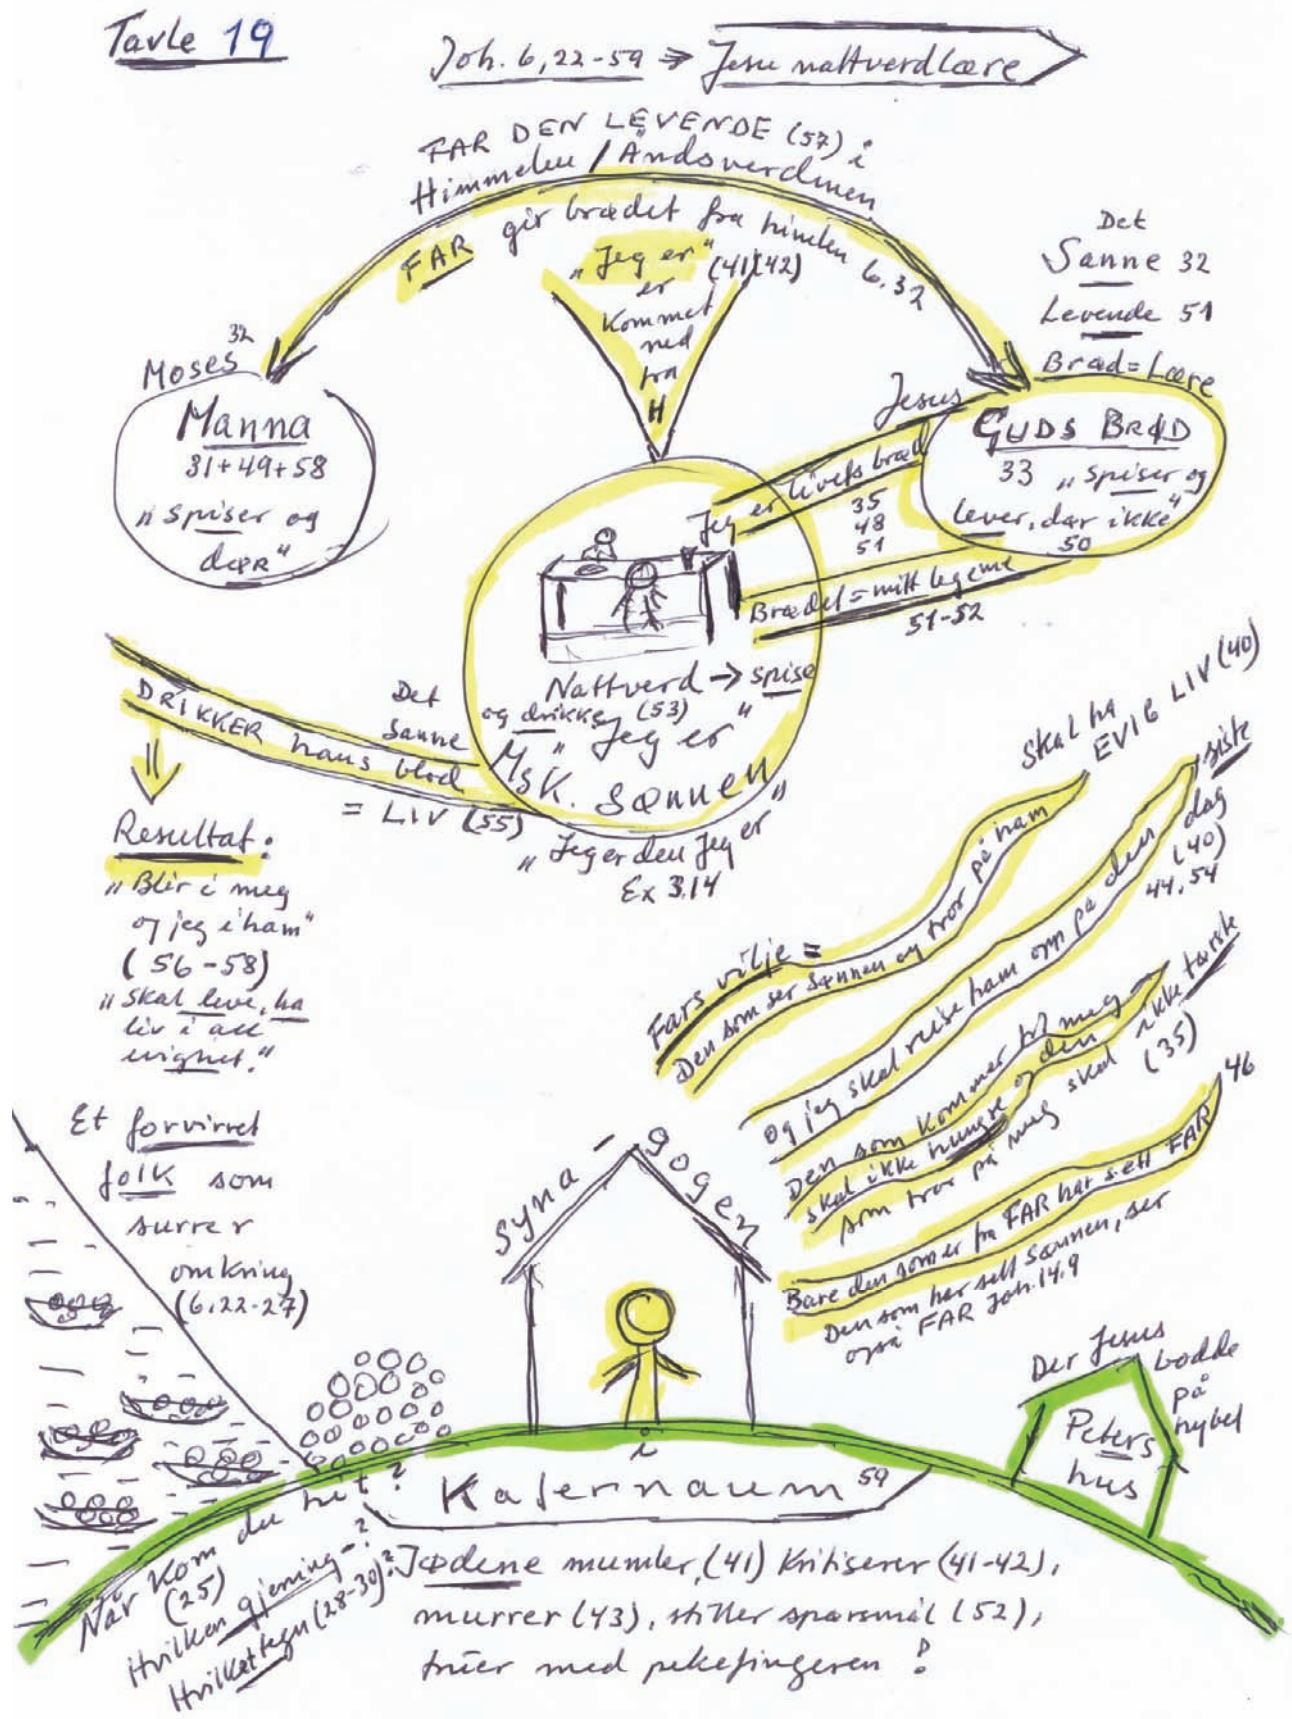 Tavle 19
Joh. 6,22-59 ⇒ Jesu nattverdlære
FAR DEN LEVENDE (57) i
Himmelen / Åndsverdnen
FAR gir brødet fra himlen 6.32
"Jeg er" (41)(42)
er
kommet
ned
fra
H
Det
Sanne 32
Levende 51
Brød = Lære
Moses 32
Manna
31+49+58
"spiser og
dør"
Jesus
GUDS BRØD
33 "spiser og
lever, dør ikke"
50
Jeg er livets brød
35
48
51
Brødet = mitt legeme
51-52
Nattverd → spise
og drikke (53)
"Jeg er"
Msk. Sønnen
"Jeg er den Jeg er"
Ex 3.14
Det
Sanne
DRIKKER hans blod
= LIV (55)
Resultat:
"Blir i meg
og jeg i ham"
(56-58)
"Skal leve, ha
liv i all
evighet."
Skal ha
EVIG LIV (40)
Fars vilje =
Den som ser Sønnen og tror på ham
og jeg skal reise ham opp på den siste
dag
(40)
44, 54
Den som kommer til meg
skal ikke hungre og den
som tror på meg skal ikke tørste
(35)
Bare den som er fra FAR har sett FAR 46
Den som har sett Sønnen, ser
også FAR Joh. 14.9
Et forvirret
folk som
surrer
omkring
(6.22-27)
Syna-gogen
i
Kafernaum 59
Der Jesus
bodde
på
hybel
Peters
hus
Når kom du hit?
(25)
Hvilken gjerning-?
Hvilket tegn (28-30)?
Jødene mumler, (41) kritiserer (41-42),
murrer (43), stiller spørsmål (52),
truer med pekefingeren?